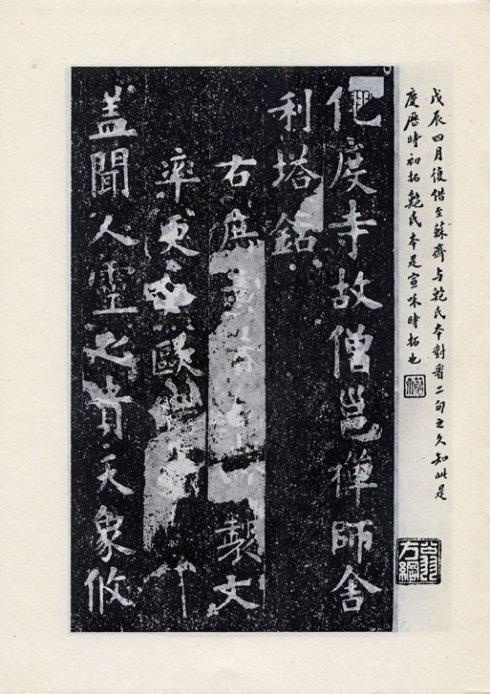 戊辰四月復借至蘇齋与氏本對看二旬之久知此是
慶曆時初拓氏本是宣咊時拓也
翁方綱
化度寺故僧邕禪師舍
利塔銘
右庶製文
率更令歐
盖聞人靈之貴天象攸